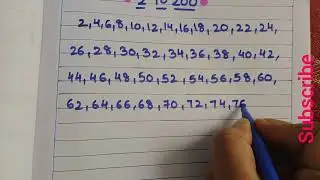 2 to 200
2,4,6,8,10,12,14,16,18,20,22,24,
26,28,30,32,34,36,38,40,42,
44,46,48,50,52,54,56,58,60,
62,64,66,68,70,72,74,76
Subscribe